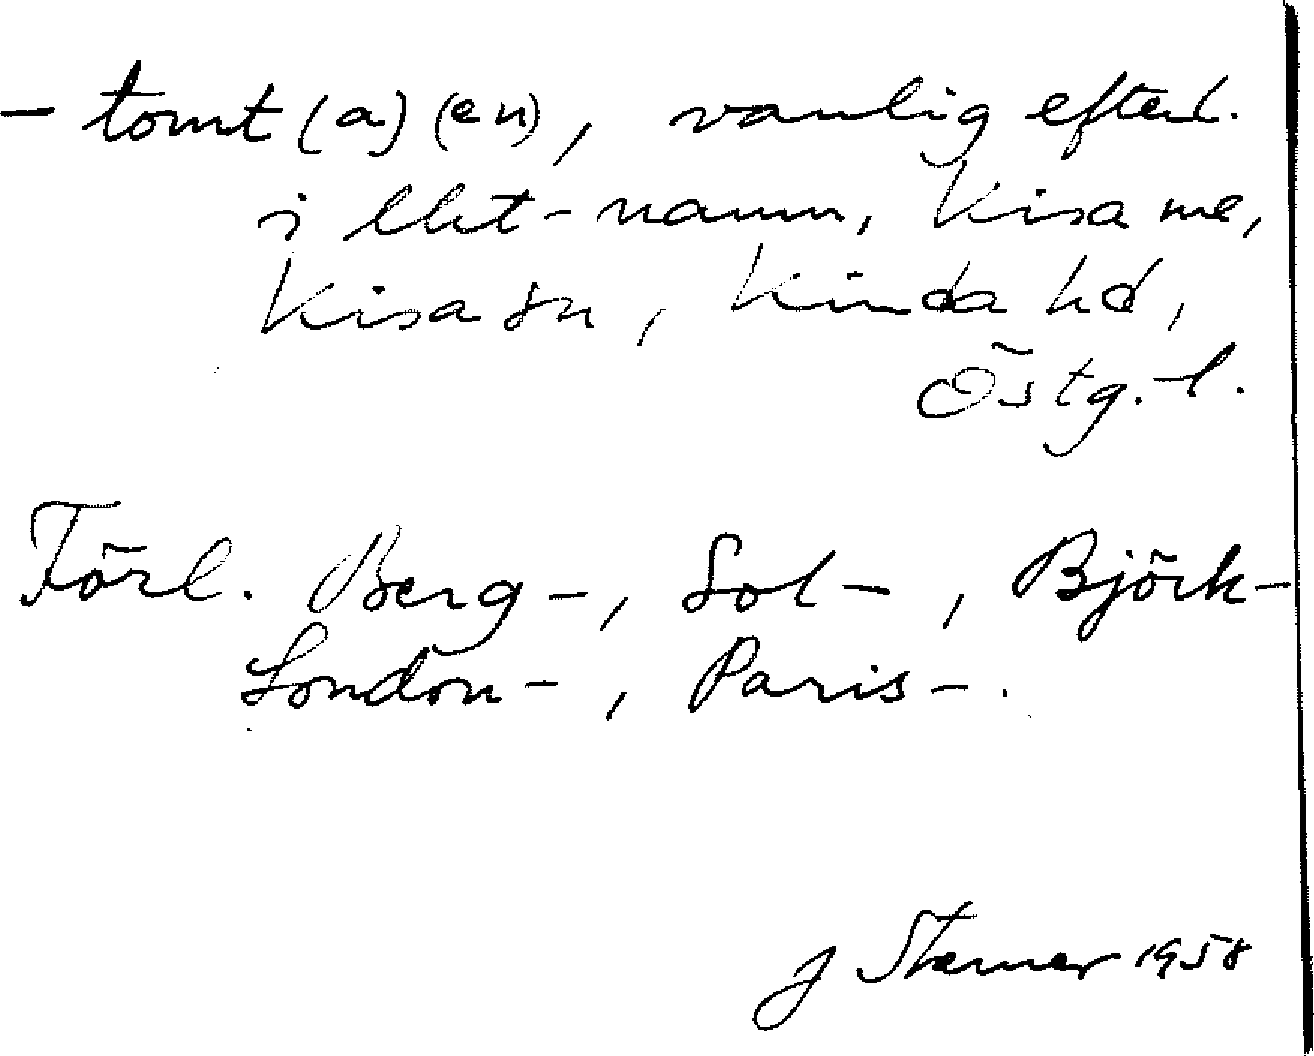 - tomt (a) (en), vanlig efterl.
i lht-namn, Kisa me,
Kisa sn, Kinda hd,
Östg. l.
Förl. Berg-, Sol-, Björk-
London-, Paris-.
J 1958